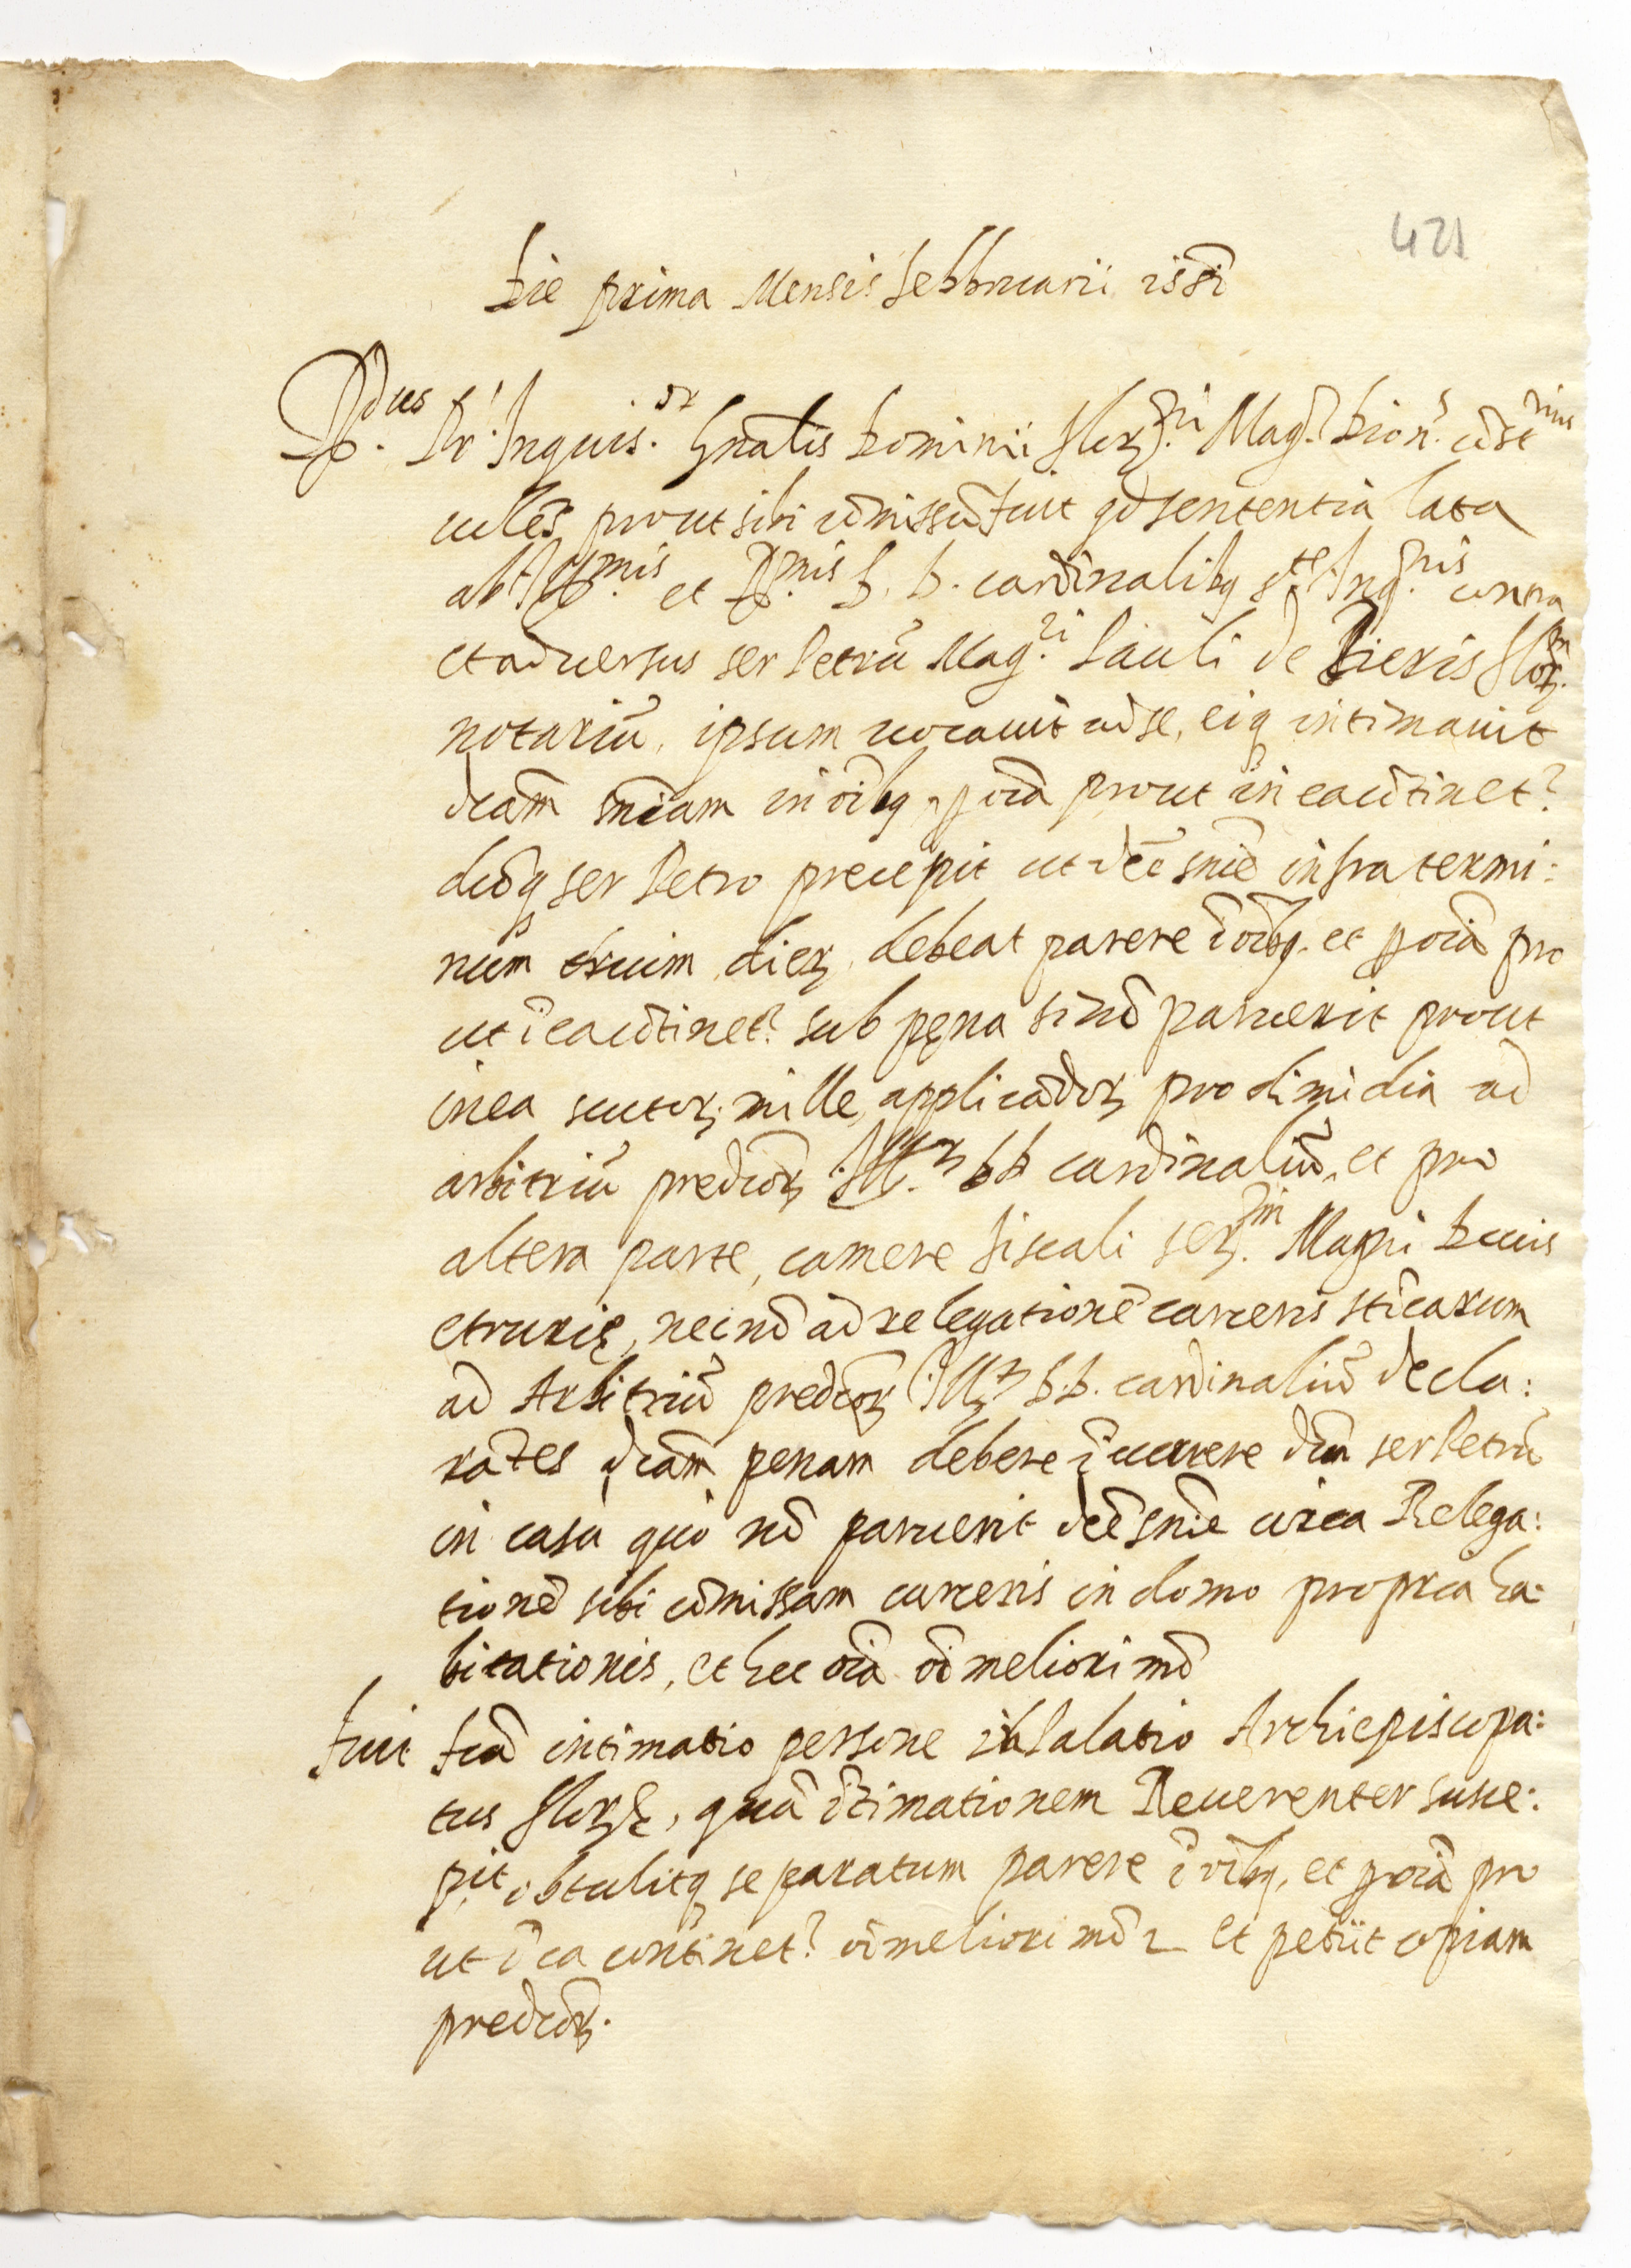 421
Die prima Mensis febbruarii 1581
R.dus Pr Inquis.or Gnālis Dominii flor.ni Mag.r Dion.s cōst.nius
uolēs prout sibi cōmissū fuit qd sententia lata
ab Ill.mis et R.mis D. D. cardinalibq s.te Inq.nis contra
et aduersus ser Petrū Mag.ri Pauli de Pieris flor.
notariū, ipsum uocauit ad se, eiq intimauit
dcam sniam in oībq, et p oīa prout in ea cōtinet?
dcōq ser Petro precepit ut dcē snīe infra termi:
num trium dierȝ debeat parere ī oībq. et p oīa pro
ut ī ea cōtinet? sub pęna si nō paruerit prout
in ea scutorȝ mille, applicādorȝ pro dimidia ad
arbitriū predcōrȝ Ill.m DD cardinaliū, et pro
altera parte, camere fiscali ser.mi Magni Ducis
etrurię, necnō ad relegationē carceris sticarum
ad Arbitriū predcōrȝ Ill. D.D. cardinaliū decla:
rātes dcam penam debere īcurrere dcm ser Petrū
in casu quo nō paruerit dcē snīe circa Relega:
tionē sibi cōmissam carceris in domo propria ha:
bitationis, et hec oīa oī meliori mō
fuit fcā intimatio persone in Palatio Archiepiscopa:
tus florȝę, quā ītimationem Reuerenter susce:
pit, obtulitq se paratum parere ī oībq, et p oīa pro
ut ī ea continet? oī meliori mō et petiit copiam
predcōrȝ.